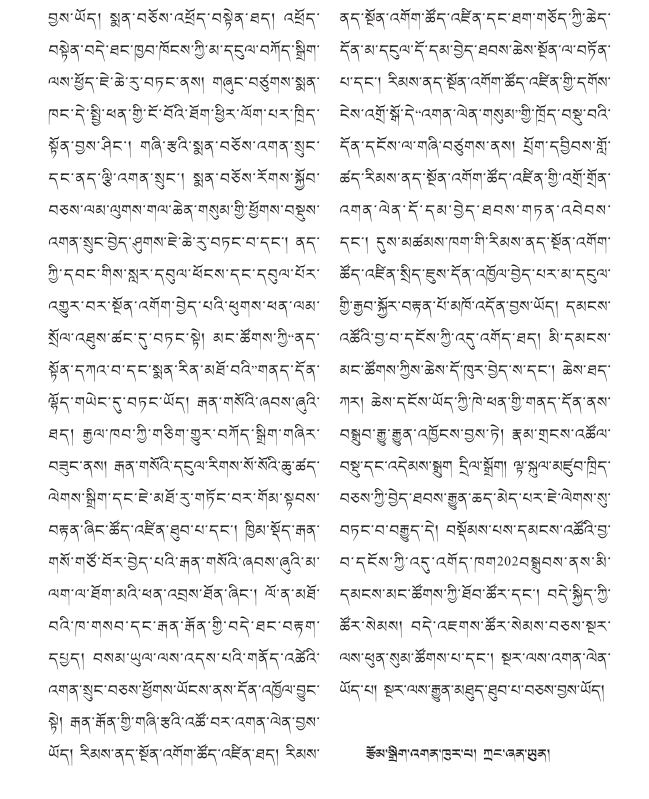 བྱས་ཡོད། སྨན་བཅོས་འཕྲོད་བསྟེན་ཐད། འཕྲོད་
བསྟེན་བདེ་ཐང་ཁྱབ་ཁོངས་ཀྱི་མ་དངུལ་བཀོད་སྒྲིག་
ལས་ཕྱོད་ཇེ་ཆེ་རུ་བཏང་ནས། གཞུང་བཙུགས་སྨན་
ཁང་དེ་སྤྱི་ཕན་གྱི་ངོ་བོའི་ཐོག་ཕྱིར་ལོག་པར་ཁྲིད་
སྟོན་བྱས་ཤིང་། གཞི་རྩའི་སྨན་བཅོས་འགན་སྲུང་
དང་ནད་ལྕི་འགན་སྲུང་། སྨན་བཅོས་རོགས་སྐྱོབ་
བཅས་ལམ་ལུགས་གལ་ཆེན་གསུམ་གྱི་ཕྱོགས་བསྡུས་
འགན་སྲུང་བྱེད་ཤུགས་ཇེ་ཆེ་རུ་བཏང་བ་དང་། ནད་
ཀྱི་དབང་གིས་སླར་དབུལ་ཕོངས་དང་དབུལ་པོར་
འགྱུར་བར་སྔོན་འགོག་བྱེད་པའི་ཕུགས་ཕན་ལམ་
སྲོལ་འཐུས་ཚང་དུ་བཏང་སྟེ། མང་ཚོགས་ཀྱི“ནད་
སྟོན་དཀའ་བ་དང་སྨན་རིན་མཐོ་བའི”གནད་དོན་
ལྷོད་གཡེང་དུ་བཏང་ཡོད། རྒན་གསོའི་ཞབས་ཞུའི་
ཐད། རྒྱལ་ཁབ་ཀྱི་གཅིག་གྱུར་བཀོད་སྒྲིག་གཞིར་
བཟུང་ནས། རྒན་གསོའི་དངུལ་རིགས་སོ་སོའི་ཆུ་ཚད་
ལེགས་སྒྲིག་དང་ཇེ་མཐོ་རུ་གཏོང་བར་གོམ་སྟབས་
བརྟན་ཞིང་ཚོད་འཛིན་ཐུབ་པ་དང་། ཁྱིམ་སྡོད་རྒན་
གསོ་གཙོ་བོར་བྱེད་པའི་རྒན་གསོའི་ཞབས་ཞུའི་མ་
ལག་ལ་ཐོག་མའི་ཕན་འབྲས་ཐོན་ཞིང་། ལོ་ན་མཐོ་
བའི་ཁ་གསབ་དང་རྒན་རྒོན་གྱི་བདེ་ཐང་བརྟག་
དཔྱད། བསམ་ཡུལ་ལས་འདས་པའི་གནོད་འཚེའི་
འགན་སྲུང་བཅས་ཕྱོགས་ཡོངས་ནས་དོན་འཁྱོལ་བྱུང་
སྟེ། རྒན་རྒོན་གྱི་གཞི་རྩའི་འཚོ་བར་འགན་ལེན་བྱས་
ཡོད། རིམས་ནད་སྔོན་འགོག་ཚོད་འཛིན་ཐད། རིམས་
ནད་སྔོན་འགོག་ཚོད་འཛིན་དང་ཐག་གཅོད་ཀྱི་ཆེད་
དོན་མ་དངུལ་དོ་དམ་བྱེད་ཐབས་ཆེས་སྔོན་ལ་བཏོན་
པ་དང་། རིམས་ནད་སྔོན་འགོག་ཚོད་འཛིན་གྱི་དགོས་
ངེས་འགྲོ་སྒོ་དེ“འགན་ལེན་གསུམ”གྱི་ཁྲོད་བསྡུ་བའི་
དོན་དངོས་ལ་གཞི་བཙུགས་ནས། པྲོག་དབྱིབས་གློ་
ཚད་རིམས་ནད་སྔོན་འགོག་ཚོད་འཛིན་གྱི་འགྲོ་གྲོན་
འགན་ལེན་དོ་དམ་བྱེད་ཐབས་གཏན་འབེབས་
དང་། དུས་མཚམས་ཁག་གི་རིམས་ནད་སྔོན་འགོག་
ཚོད་འཛིན་སྲིད་ཇུས་དོན་འཁྱོལ་བྱེད་པར་མ་དངུལ་
གྱི་རྒྱབ་སྐྱོར་བརྟན་པོ་མཁོ་འདོན་བྱས་ཡོད། དམངས་
འཚོའི་བྱ་བ་དངོས་ཀྱི་འདུ་འགོད་ཐད། མི་དམངས་
མང་ཚོགས་ཀྱིས་ཆེས་དོ་ཁུར་བྱེད་ས་དང་། ཆེས་ཐད་
ཀར། ཆེས་དངོས་ཡོད་ཀྱི་ཁེ་ཕན་གྱི་གནད་དོན་ནས་
བསྒྲུབ་རྒྱུ་རྒྱུན་འཁྱོངས་བྱས་ཏེ། རྣམ་གྲངས་འཚོལ་
བསྡུ་དང་འདེམས་སྒྲུག དྲིལ་སྒྲོག། ལྟ་སྐུལ་མཛུབ་ཁྲིད་
བཅས་ཀྱི་བྱེད་ཐབས་རྒྱུན་ཆད་མེད་པར་ཇེ་ལེགས་སུ་
བཏང་བ་བརྒྱུད་དེ། བསྡོམས་པས་དམངས་འཚོའི་བྱ་
བ་དངོས་ཀྱི་འདུ་འགོད་ཁག202བསྒྲུབས་ནས་མི་
དམངས་མང་ཚོགས་ཀྱི་ཐོབ་ཚོར་དང་། བདེ་སྐྱིད་ཀྱི་
ཚོར་སེམས། བདེ་འཇགས་ཚོར་སེམས་བཅས་སྔར་
ལས་ཕུན་སུམ་ཚོགས་པ་དང་། སྔར་ལས་འགན་ལེན་
ཡོད་པ། སྔར་ལས་རྒྱུན་མཐུད་ཐུབ་པ་བཅས་བྱས་ཡོད།
རྩོམ་སྒྲིག་འགན་ཁུར་པ། ཀྲང་ཞན་ཡུན།